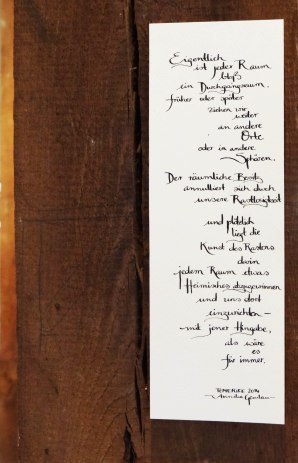 Eigentlich
ist jeder Raum
bloß
ein Durchgangsraum.
früher oder später
ziehen wir
weiter
an andere
Orte
oder in andere
Sphären.
Der räumliche Besitz
annulliert sich durch
unsere Rastlosigkeit
und plötzlich
liegt die
Kunst des Rastens
darin
jedem Raum etwas
Heimisches abzugewinnen
und uns dort
einzurichten –
– mit jener Hingabe,
als wäre
es
für immer.
2014